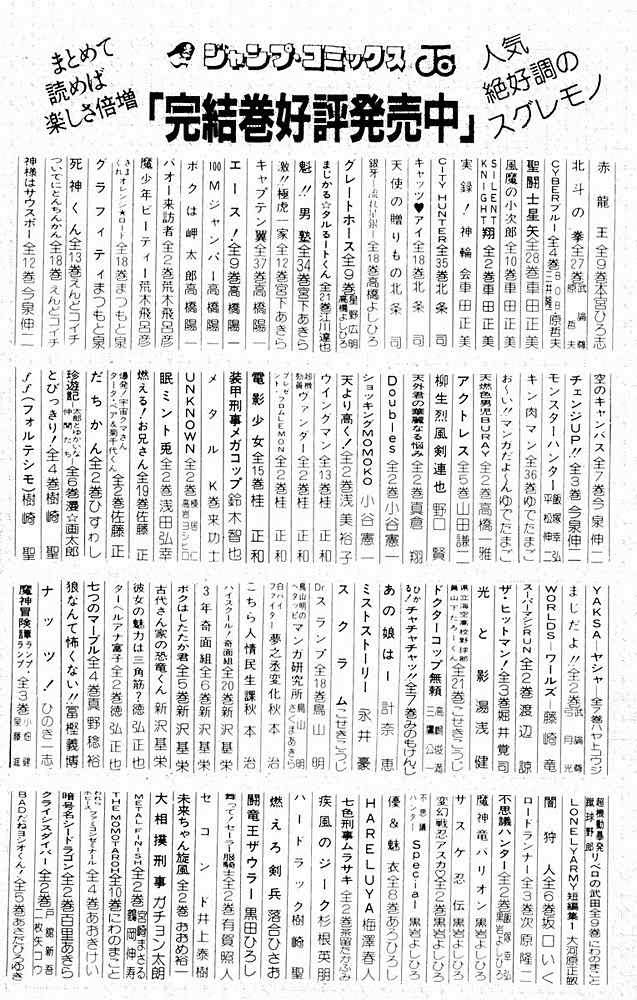 まとめて
読めば
楽しさ倍増
ジャンプ・コミックス
人気
絶好調の
スグレモノ
「完結巻好評発売中」
赤龍王 全9巻 本宮ひろ志
北斗の拳 全27巻 武論尊 原哲夫
CYBERブルー 全4巻 原哲夫
聖闘士星矢 全28巻 車田正美
風魔の小次郎 全10巻 車田正美
SILENT KNIGHT 翔 全2巻 車田正美
実録!神輪会 車田正美
CITY HUNTER 全35巻 北条司
キャッツ♥アイ 全18巻 北条司
天使の贈りもの 北条司
銀牙―流れ星銀― 全18巻 高橋よしひろ
グレートホース 全9巻 星野広明 高橋よしひろ
まじかる☆タルるートくん 全21巻 江川達也
魁!!男塾 全34巻 宮下あきら
激!!極虎一家 全12巻 宮下あきら
キャプテン翼 全37巻 高橋陽一
エース! 全9巻 高橋陽一
100Mジャンパー 高橋陽一
ボクは岬太郎 高橋陽一
バオー来訪者 全2巻 荒木飛呂彦
魔少年ビーティー 荒木飛呂彦
きまぐれオレンジ★ロード 全18巻 まつもと泉
グラフィティ まつもと泉
死神くん 全13巻 えんどコイチ
ついでにとんちんかん 全18巻 えんどコイチ
神様はサウスポー 全12巻 今泉伸二
空のキャンバス 全7巻 今泉伸二
チェンジUP!! 全3巻 今泉伸二
モンスターハンター 飯塚幸弘 平松伸二
キン肉マン 全36巻 ゆでたまご
おくしい!!マンガだよ〜ん ゆでたまご
天燃色男児BURAY 全2巻 高橋一雅
アクトレス 全5巻 山田謙二
柳生烈風剣連也 野口賢
天外君の華麗なる悩み 全2巻 真倉翔
Doubles 全2巻 小谷憲一
ショッキングMOMOKO 小谷憲一
天より高く! 全2巻 浅美裕子
ウイングマン 全13巻 桂正和
超機動員ヴァンダー 全2巻 桂正和
プレゼント・フロムLEMON 全2巻 桂正和
電影少女 全15巻 桂正和
装甲刑事メガコップ 鈴木智也
メタルK 巻来功士
UNKNOWN 全2巻 高岩ヨシヒロ
眠兎 全2巻 浅田弘幸
燃える!お兄さん 全19巻 佐藤正
爆発!宇宙クマさん 全2巻 佐藤正
だちかん 全2巻 ひすわし
珍遊記―太郎とゆかいな仲間たち― 全6巻 漫☆画太郎
とびっきり! 全4巻 樹崎聖
ff(フォルテシモ) 樹崎聖
YAKSA―ヤシャ 全7巻 ハヤトコウジ
まじだよ!! 全2巻 武論尊 弓月光
WORLDS―ワールズ― 藤崎竜
スーパーマシンRUN 全2巻 渡辺諒
ザ・ヒットマン! 全3巻 堀井覚司
光と影 湯浅健
県立海空高校野球部員山下たろーくん 全21巻 こせきこうじ
ドクターコップ無頼 高嶋遊満 三鷹公一
ひかる!チャチャチャッ!! 全7巻 みのもけんじ
あの娘は… 計奈恵
ミストストーリー 永井豪
スクラム こせきこうじ
Dr.スランプ 全18巻 鳥山明
鳥山明のヘタッピマンガ研究所 さくまあきら 鳥山明
白バイファイター夢之丞変化 秋本治
こちら人情民生課 秋本治
ハイスクール!奇面組 全20巻 新沢基栄
3年奇面組 全6巻 新沢基栄
ボクはしたたか君 全5巻 新沢基栄
古代さん家の恐竜くん 新沢基栄
彼女の魅力は三角筋? 徳弘正也
ターヘルアナ富子 全2巻 徳弘正也
七つのマーブル 全4巻 真野稔裕
狼なんて怖くない!! 冨樫義博
ナッツ! ひのき一志
魔神冒険譚ランプ・ランプ 全3巻 小畑健
超機動暴発蹴球野郎リベロの武田 全9巻 にわのまこと
LONELY ARMY 短編集1 大河原正敏
闇狩人 全6巻 坂口いく
ロードランナー 全3巻 次原隆二
不思議ハンター 全2巻 飯塚幸弘 黒岩よしひろ
魔神竜バリオン 黒岩よしひろ
サスケ忍伝 黒岩よしひろ
変幻戦忍アスカ 全2巻 黒岩よしひろ
不思議ハンターSpecial 黒岩よしひろ
優&魅衣 全8巻 あろひろし
HARELUYA 梅澤春人
七色刑事ムラサキ 全2巻 茶留たかふみ
疾風のジーク 杉根英朋
ハードラック 樹崎聖
燃えろ剣兵 落合ひさお
闘竜王ザウラー 黒田ひろし
舞って!セーラー服騎士 全2巻 有賀照人
セコンド 井上泰樹
未来ちゃん旋風 全2巻 おおめ裕一
大相撲刑事 ガチョン太朗
METAL FINISH 全2巻 宮崎まさる 鶴岡伸寿
THE MOMOTAROH 全10巻 にわのまこと
ファミコンゼミナール 全4巻 あおきけい
暗号名シードラゴン 全2巻 百里あきら
クライシスダイバー 全2巻 戸舘新吾 二枚矢コウ
BADだねヨシオくん! 全5巻 あさだひろゆき